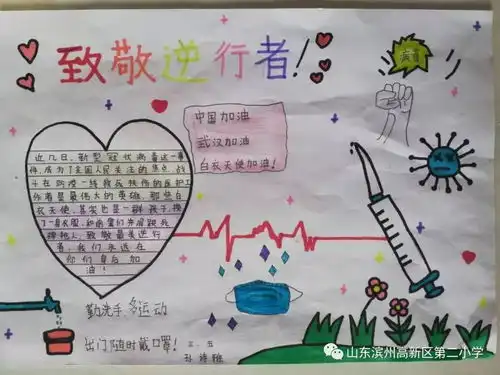 致敬逆行者!
病毒
中国加油
武汉加油
白衣天使加油!
近几日,新型冠状病毒这一事
件,成为了全国人民关注的焦点,战
斗在防疫一线救死扶伤的医护工
作者是最伟大的英雄,那些白
衣天使,其实也是一群孩子,换
了一身衣服,
致敬最美逆行
者,我们永远在
你们身后加
油!
勤洗手 多运动
出门随时戴口罩!
三.五
山东滨州高新区第二小学